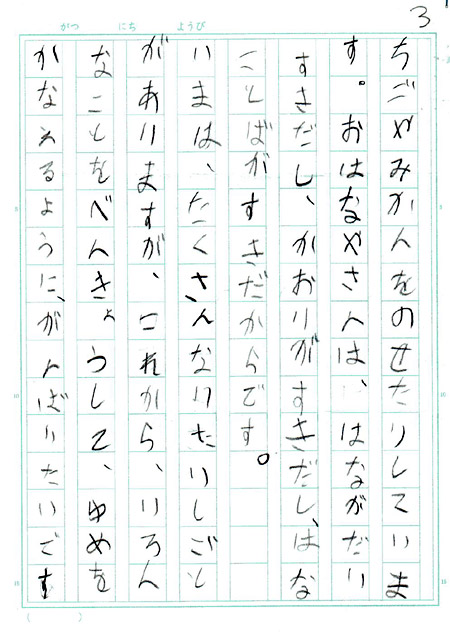 3
がつ にち ようび
ちごやみかんをのせたりしていま
す。おはなやさんは、はながだい
すきだし、かおりがすきだし、はな
ことばがすきだからです。
いまは、たくさんなりたいしごと
がありますが、これから、いろん
なことをべんきょうして、ゆめを
かなえるように、がんばりたいです